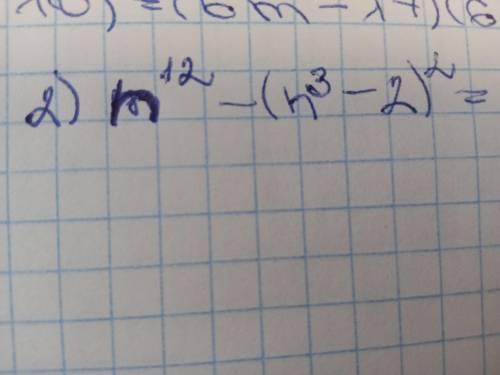 ) = (6m - 17)(6
2) n¹² - (n³ - 2)² =